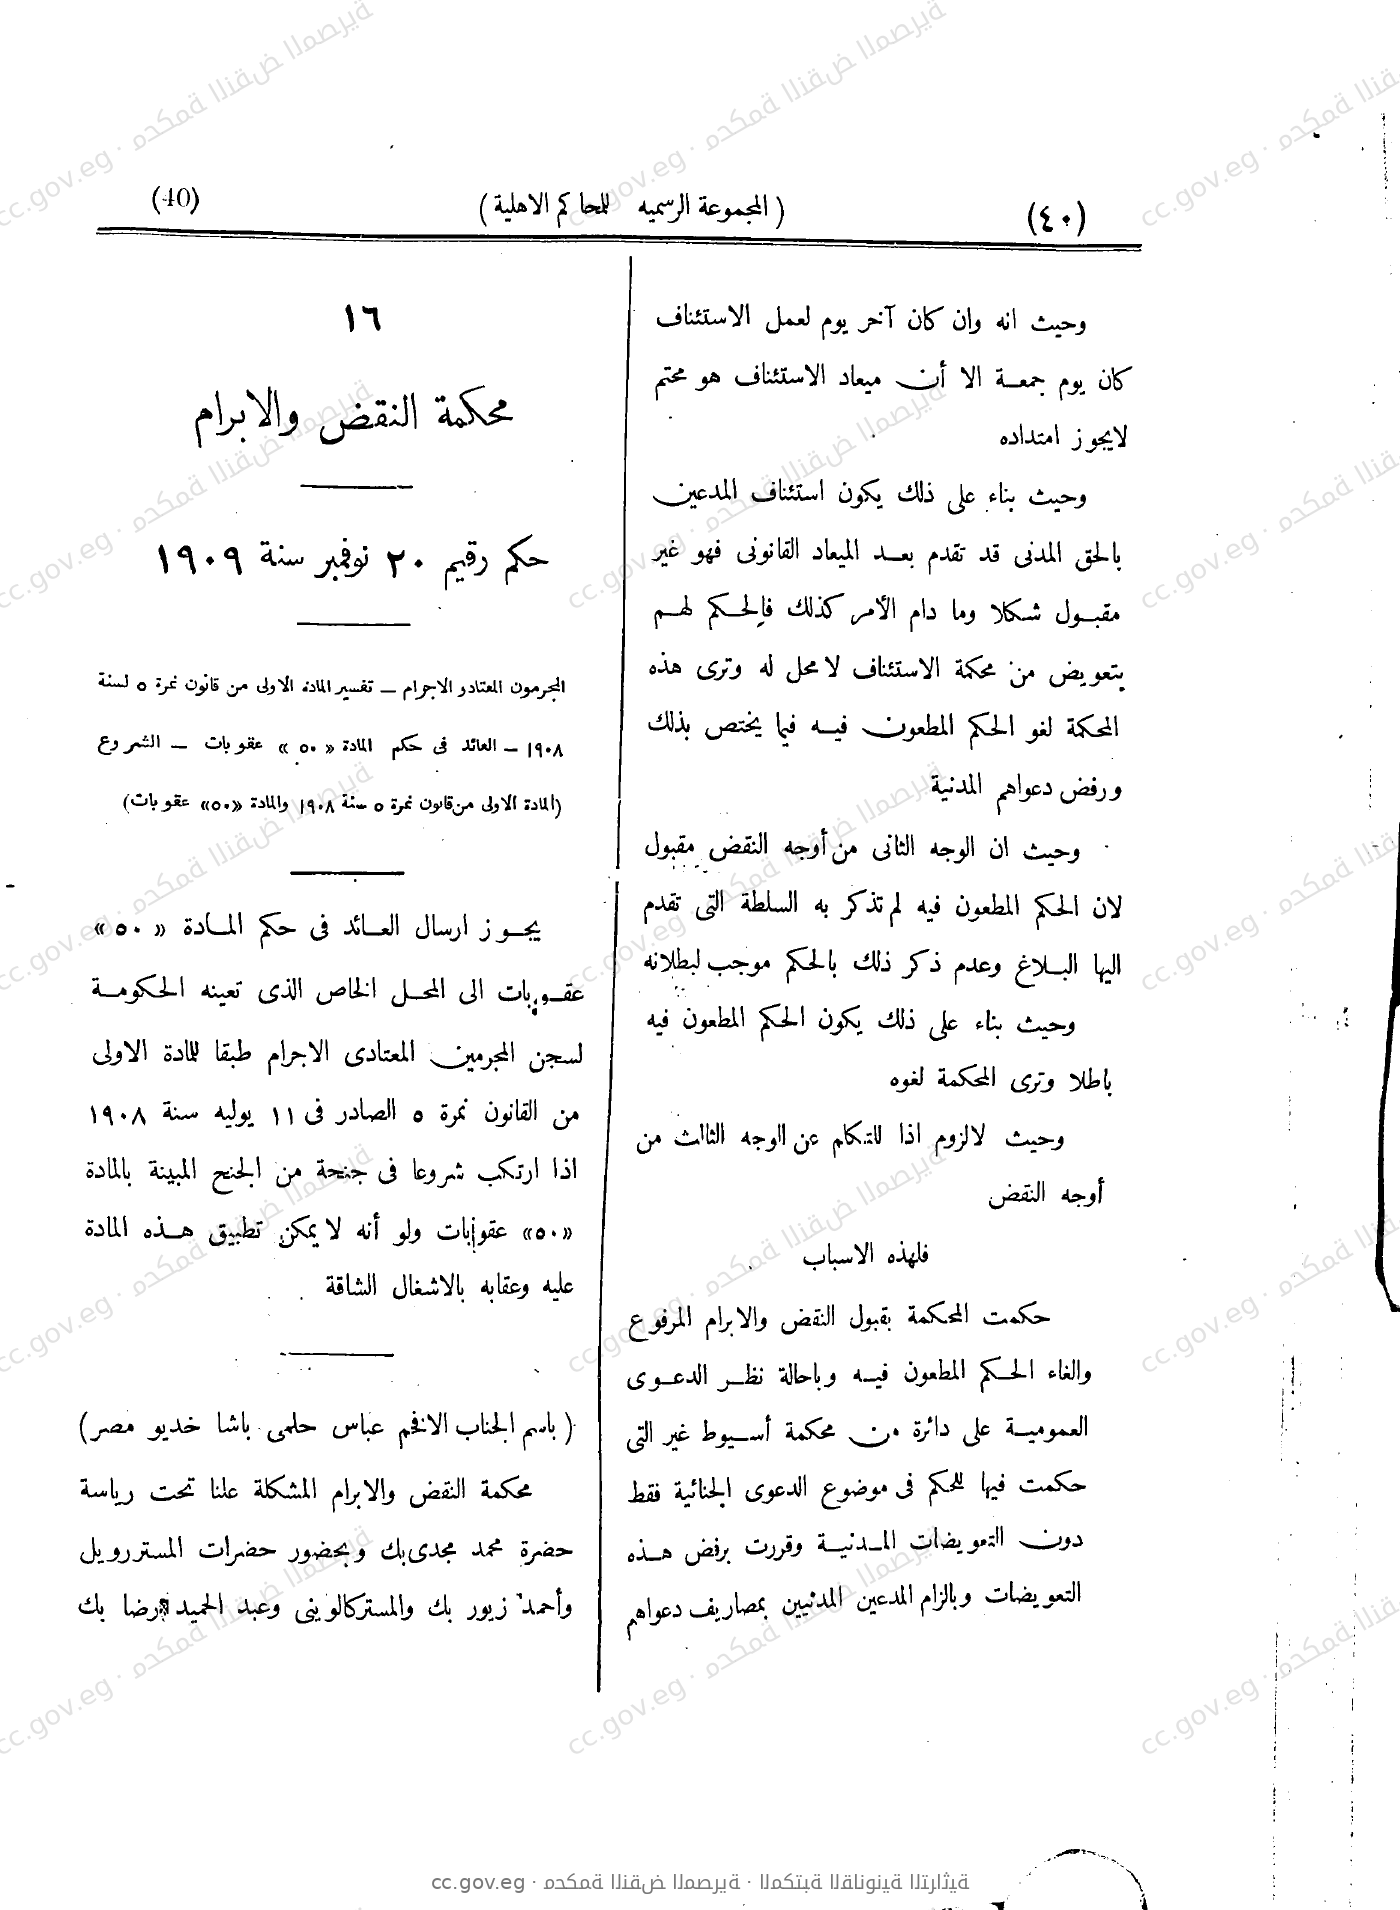 (٤٠) ( المجموعة الرسميه للمحاكم الاهلية ) (40)
وحيث انه وان كان آخر يوم لعمل الاستئناف
كان يوم جمعة الا أن ميعاد الاستئناف هو محتم
لايجوز امتداده
وحيث بناء على ذلك يكون استئناف المدعين
بالحق المدنى قد تقدم بعد الميعاد القانونى فهو غير
مقبول شكلا وما دام الأمر كذلك فالحكم لهم
بتعويض من محكمة الاستئناف لا محل له وترى هذه
المحكمة لغو الحكم المطعون فيه فيما يختص بذلك
ورفض دعواهم المدنية
وحيث ان الوجه الثانى من أوجه النقض مقبول
لان الحكم المطعون فيه لم تذكر به السلطة التى تقدم
اليها البلاغ وعدم ذكر ذلك بالحكم موجب لبطلانه
وحيث بناء على ذلك يكون الحكم المطعون فيه
باطلا وترى المحكمة لغوه
وحيث لالزوم اذا للتكلم عن الوجه الثالث من
أوجه النقض
فلهذه الاسباب
حكمت المحكمة بقبول النقض والابرام المرفوع
والغاء الحكم المطعون فيه وباحالة نظر الدعوى
العمومية على دائرة من محكمة أسيوط غير التى
حكمت فيها للحكم فى موضوع الدعوى الجنائية فقط
دون التعويضات المدنية وقررت برفض هذه
التعويضات وبالزام المدعين المدنيين بمصاريف دعواهم
١٦
محكمة النقض والابرام
حكم رقيم ٢٠ نوفمبر سنة ١٩٠٩
المجرمون المعتادو الاجرام – تفسير المادة الاولى من قانون نمرة ٥ لسنة
١٩٠٨ – العائد فى حكم المادة « ٥٠ » عقوبات – الشروع
(المادة الاولى من قانون نمرة ٥ سنة ١٩٠٨ والمادة «٥٠» عقوبات)
يجوز ارسال العائد فى حكم المادة « ٥٠ »
عقوبات الى المحل الخاص الذى تعينه الحكومة
لسجن المجرمين المعتادى الاجرام طبقا للمادة الاولى
من القانون نمرة ٥ الصادر فى ١١ يوليه سنة ١٩٠٨
اذا ارتكب شروعا فى جنحة من الجنح المبينة بالمادة
«٥٠» عقوبات ولو أنه لا يمكن تطبيق هذه المادة
عليه وعقابه بالاشغال الشاقة
( باسم الجناب الافخم عباس حلمى باشا خديو مصر )
محكمة النقض والابرام المشكلة علنا تحت رياسة
حضرة محمد مجدى بك وبحضور حضرات المستر رويل
وأحمد زيور بك والمستر كالوينى وعبد الحميد رضا بك
cc.gov.eg · محكمة النقض المصرية · المكتبة القانونية التراثية